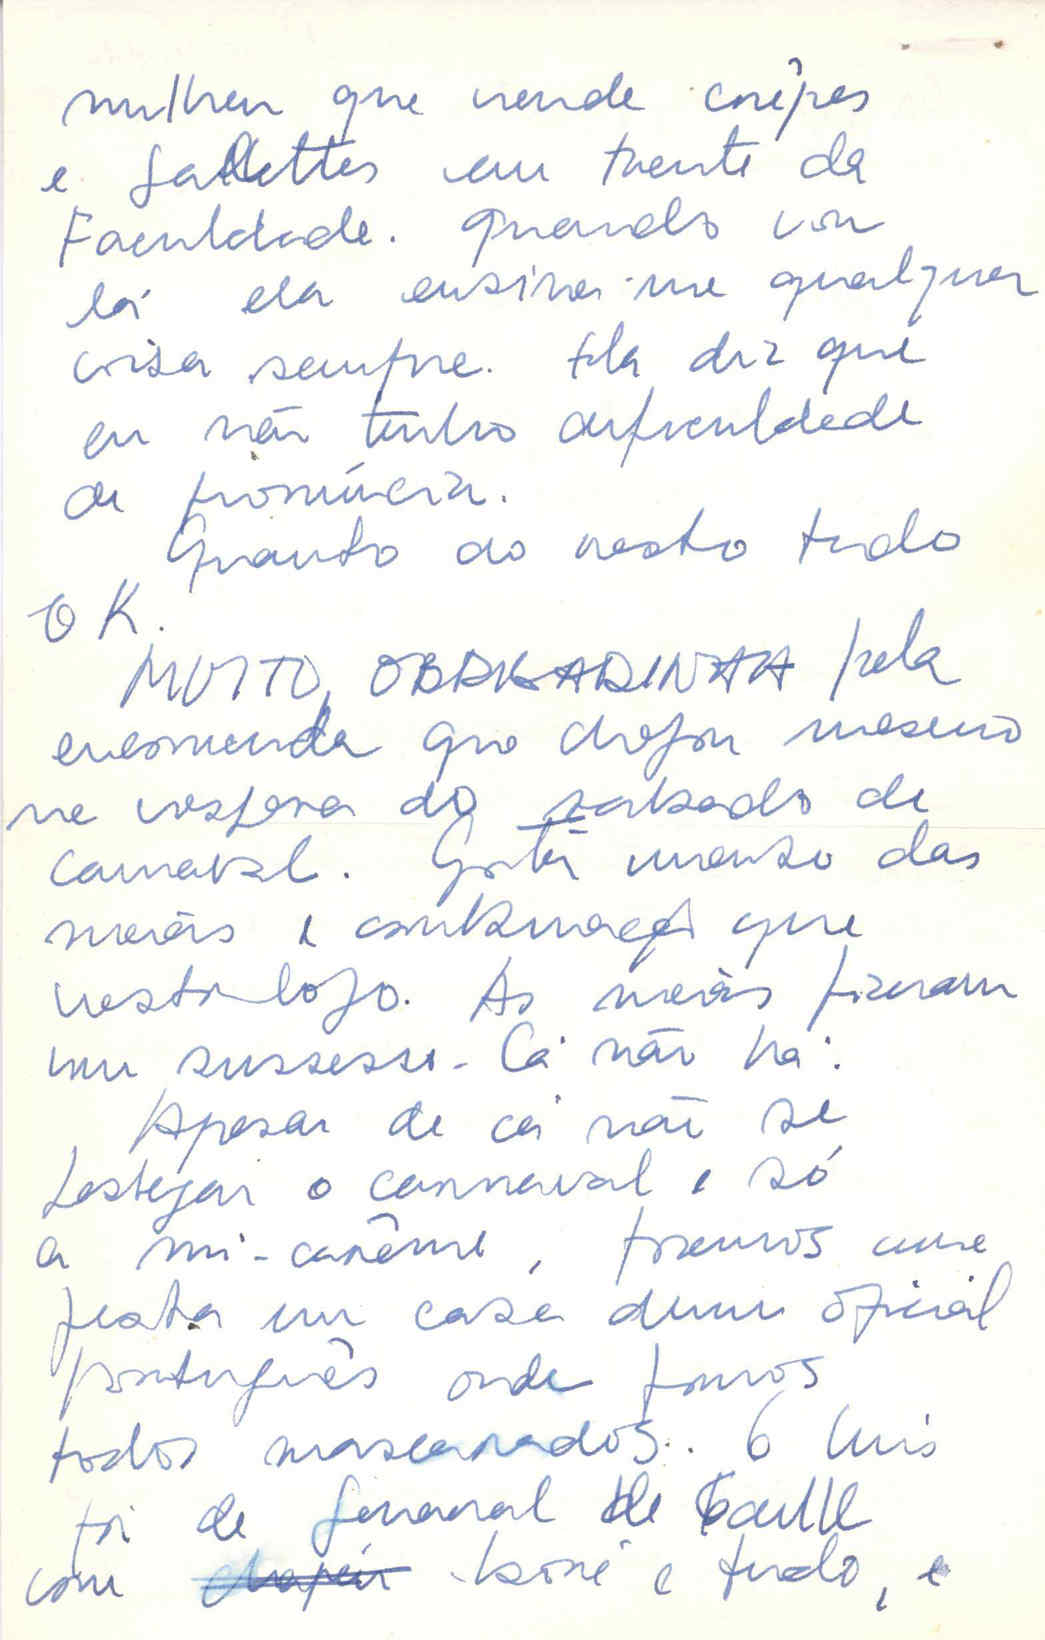 mulher que vende crêpes
e gallettes em frente da
Faculdade. Quando vou
lá ela ensina-me qualquer
coisa sempre. Ela diz que
eu não tenho dificuldade
de pronúncia.
Quanto ao resto tudo
OK.
MUITO, OBRIGADINHA pela
encomenda que chegou mesmo
na vespera do sabado de
carnaval. Gostei imenso das
meias e combinação que
vesti logo. As meias fizeram
um sussesso. Cá não há.
Apesar de cá não se
festejar o carnaval e só
a mi-carême, fizemos uma
festa em casa dum oficial
português onde fomos
todos mascarados. O Luis
foi de General de Gaulle
com chapéu boné e tudo, e